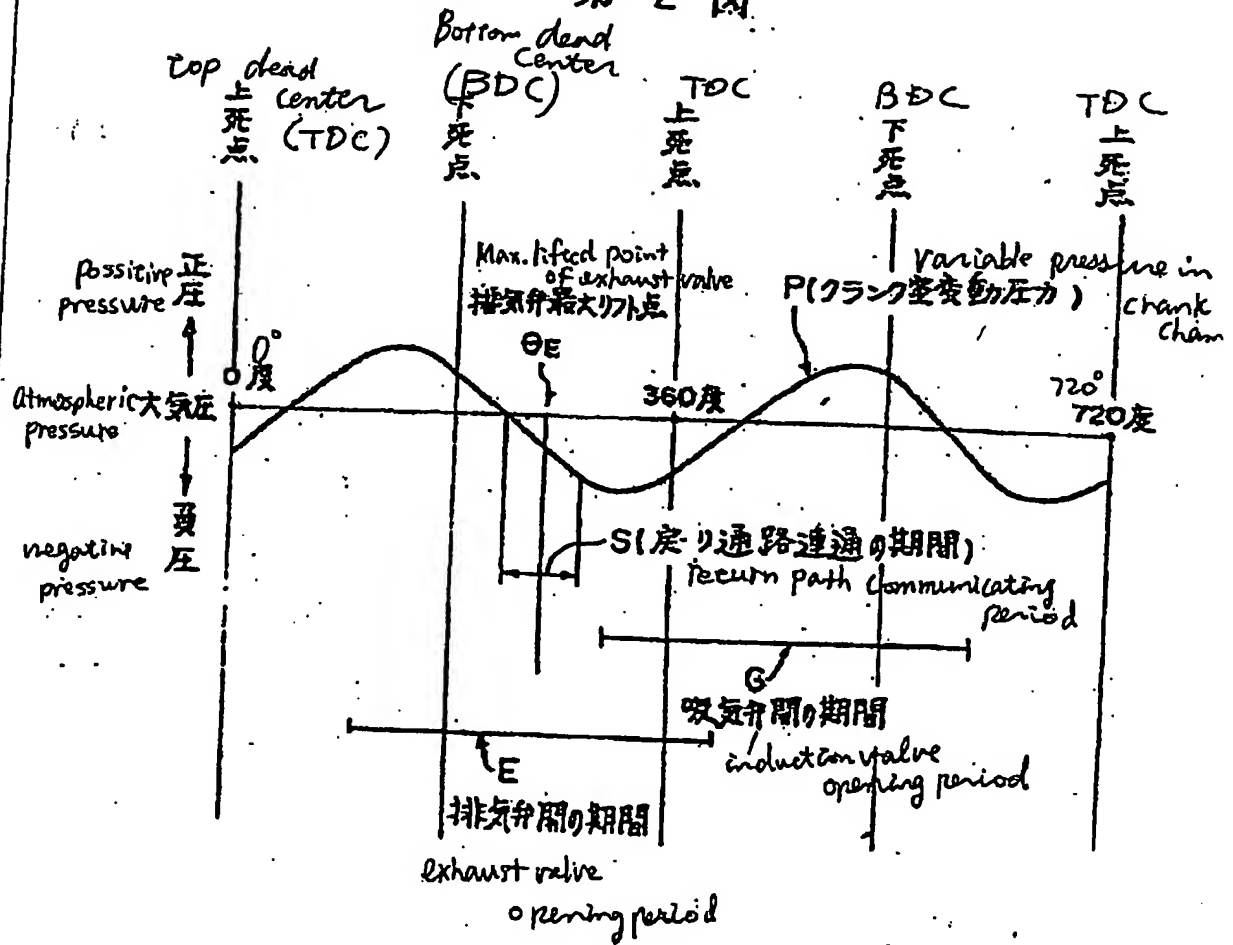 第2図
Bottom dead
center
(BDC)
下死点
top dead
center
(TDC)
上死点
TDC
上死点
BDC
下死点
TDC
上死点
possitive
pressure
正圧
0°
0度
Atmospheric
pressure
大気圧
negative
pressure
負圧
Max. lifted point
of exhaust valve
排気弁最大リフト点
ΘE
variable pressure in
chank
cham
P(クランク室変動圧力)
360度
720°
720度
S(戻り通路連通の期間)
return path communicating
period
G
吸気弁開の期間
induction valve
opening period
E
排気弁開の期間
exhaust valve
opening period